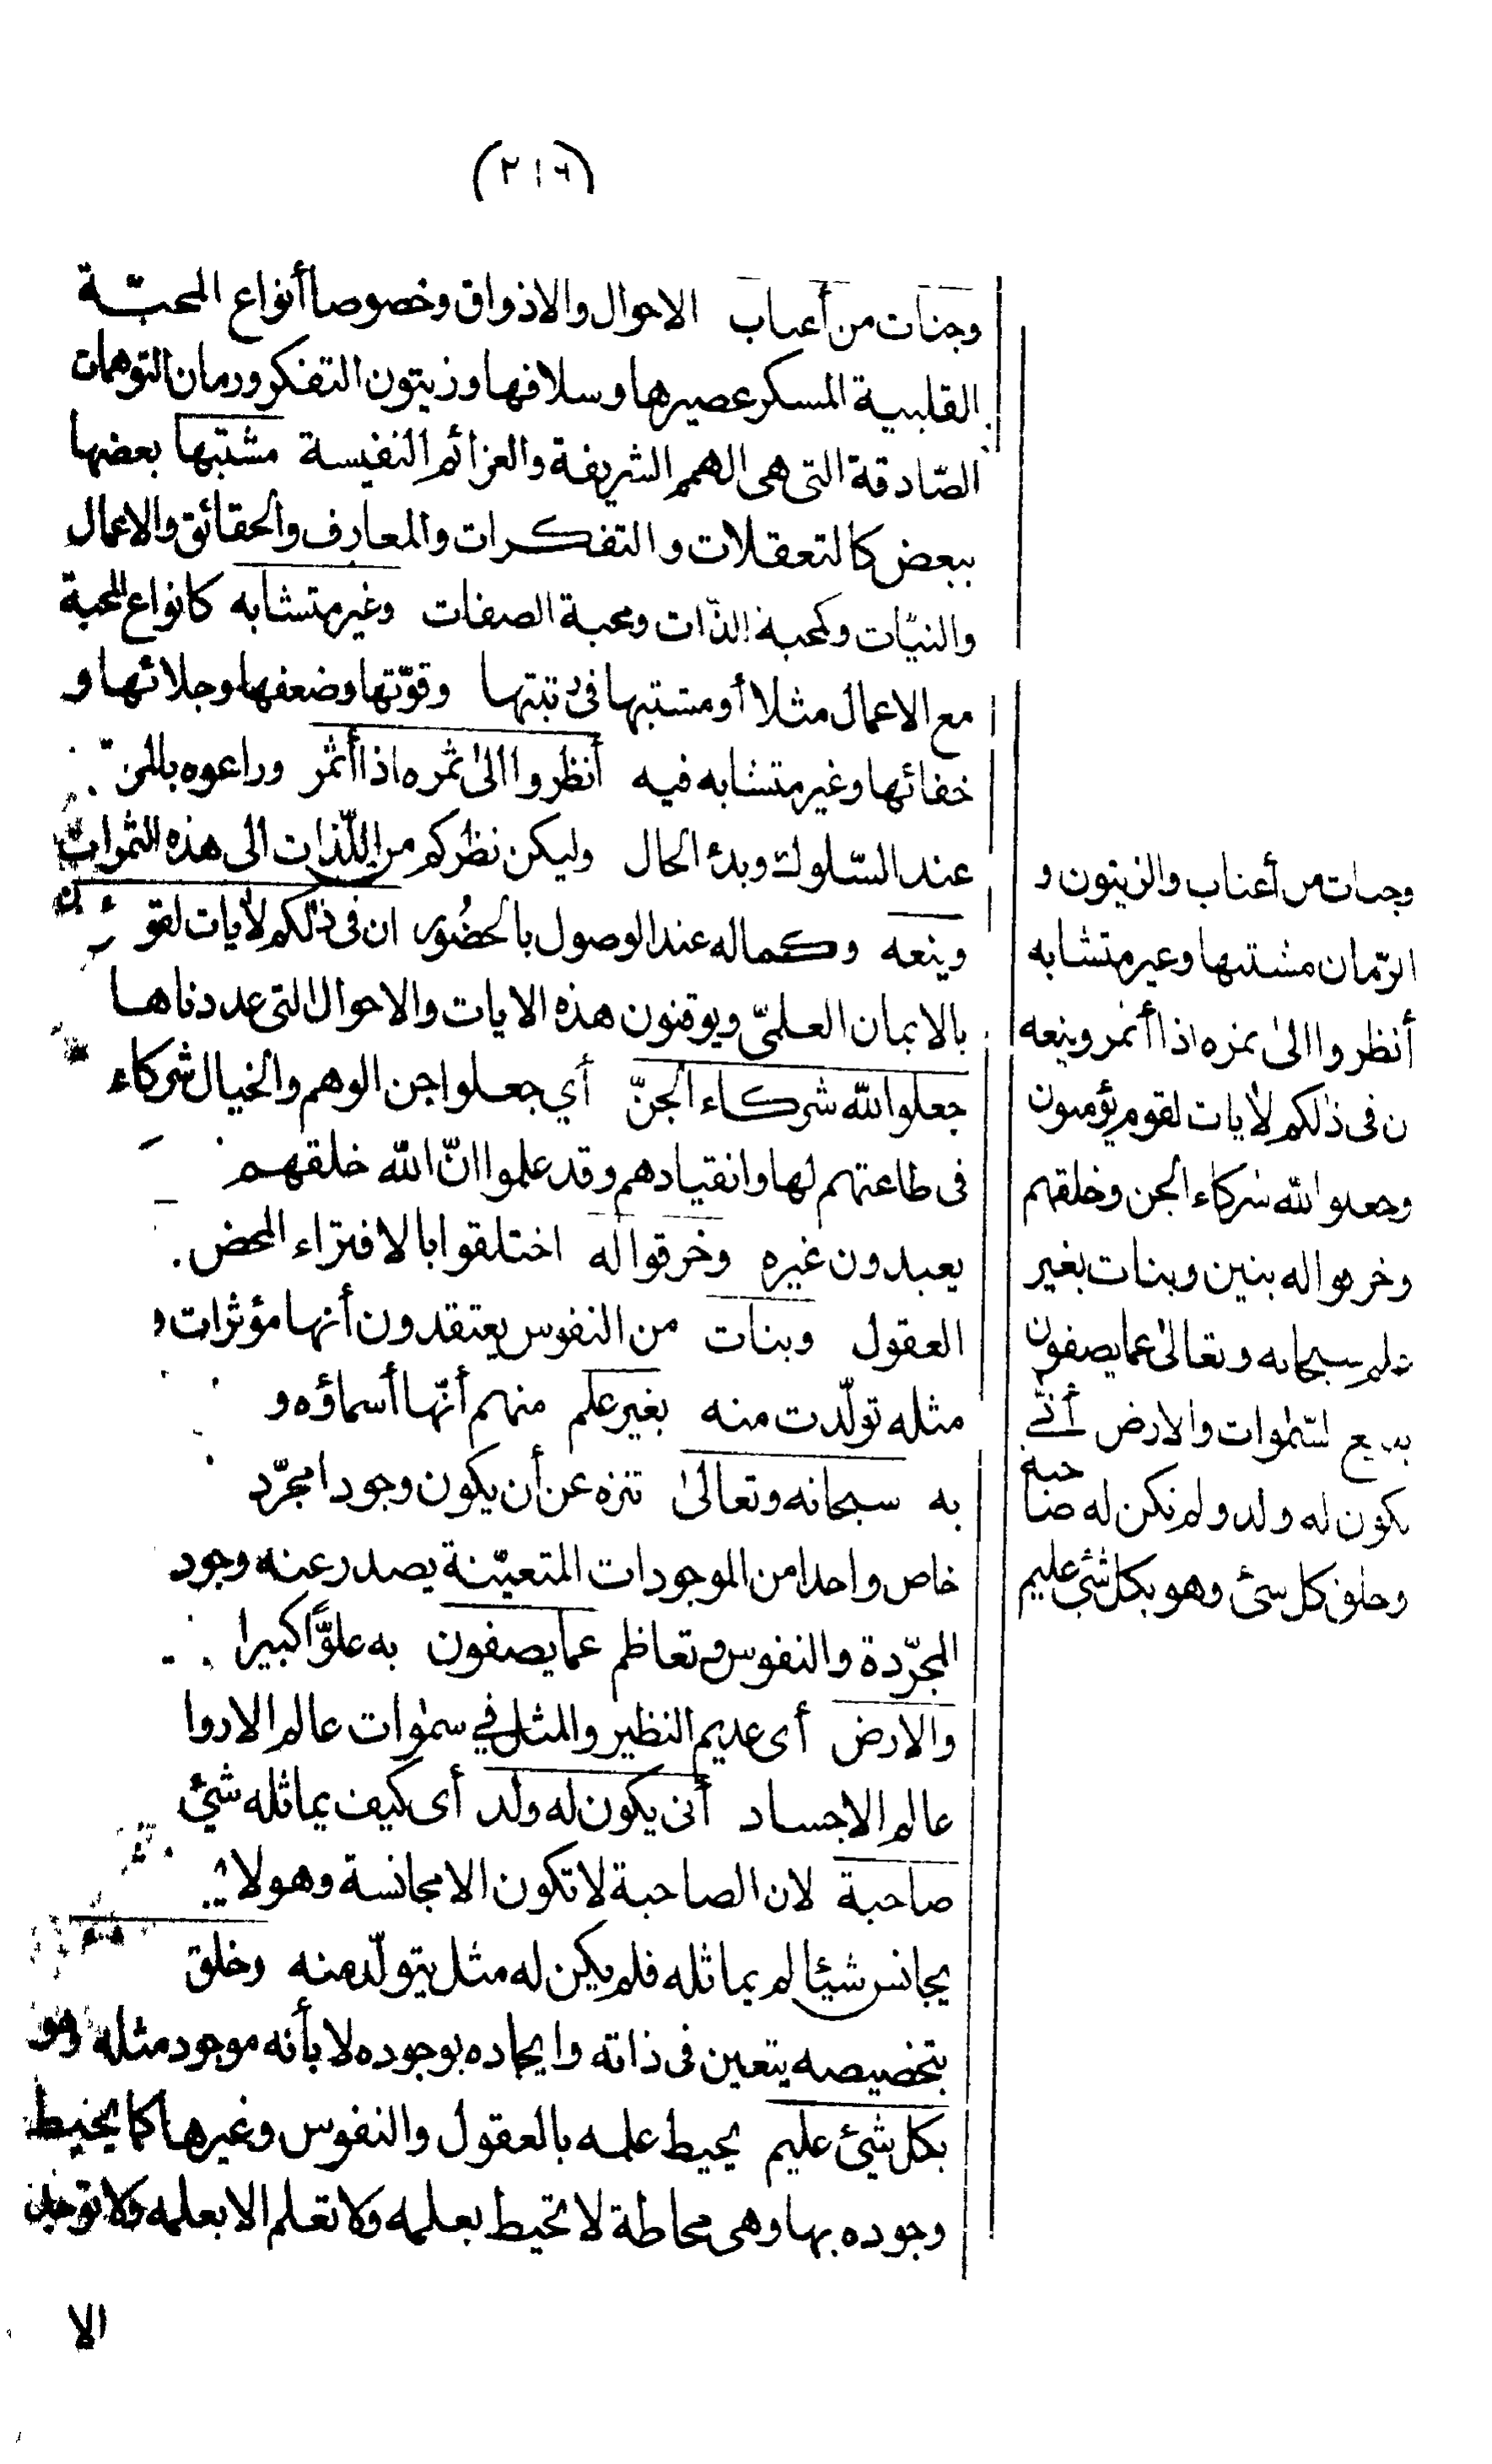 (٢١٦)
وجنات من أعناب الاحوال والاذواق وخصوصا أنواع المحبّة
القلبية المسكر عصيرها وسلافها وزيتون التفكر ورمان التوهمات
الصّادقة التى هى الهمم الشريفة والعزائم النفيسة مشتبها بعضها
ببعض كالتعقلات والتفكرات والمعارف والحقائق والاعمال
والنيّات وكمحبة الذّات ومحبة الصفات وغير متشابه كانواع المحبة
مع الاعمال مثلا أو مشتبها فى رتبتها وقوّتها وضعفها وجلائها و
خفائها وغير متشابه فيه أنظروا الىٰ ثمره اذا أثمر وراعوه بالمن
عند السّلوك وبدء الحال وليكن نظركم من اللّذات الى هذه الثمرات
وينعه وكماله عند الوصول بالحضُور ان فى ذٰلكم لأيات لقو
بالايمان العلمىّ ويوقنون هذه الايات والاحوال التى عددناها
جعلوا لله شركاء الجنّ أي جعلوا جن الوهم والخيال شركاء
فى طاعتهم لها وانقيادهم وقد علموا انّ الله خلقهم
يعبدون غيره وخرقوا له اختلقوا بالافتراء المحض
العقول وبنات من النفوس يعتقدون أنها مؤثرات و
مثله تولّدت منه بغير علم منهم أنّها أسماؤه و
به سبحانه وتعالىٰ تنزه عن أن يكون وجودا مجرّد
خاص واحدا من الموجودات المتعيّنة يصدر عنه وجود
المجرّدة والنفوس وتعاظم عما يصفون به علوًّا كبيرا
والارض أى عديم النظير والمثل في سمٰوات عالم الاروا
عالم الاجساد أنى يكون له ولد أى كيف يماثله شئ
صاحبة لان الصاحبة لا تكون الا مجانسة وهو لا
يجانس شيئا لم يماثله فلم يكن له مثل يتولّد منه وخلق
بتخصيصه يتعين فى ذاته وايجاده بوجوده لا بأنه موجود مثله وهو
بكل شئ عليم يحيط علمه بالعقول والنفوس وغيرها كما يحيط
وجوده بها وهى محاطة لا تحيط بعلمه ولا تعلم الا بعلمه ولا توجد
الا
وجنات من أعناب والزيتون و
الرّمان مشتبها وغير متشابه
أنظروا الىٰ ثمره اذا أثمر وينعه
ن فى ذٰلكم لأيات لقوم يؤمنون
وجعلوا لله شركاء الجن وخلقهم
وخرقوا له بنين وبنات بغير
علم سبحانه وتعالىٰ عما يصفون
بديع السّمٰوات والارض أنّى
يكون له ولد ولم تكن له صاحبة
وخلق كل شئ وهو بكل شئ عليم